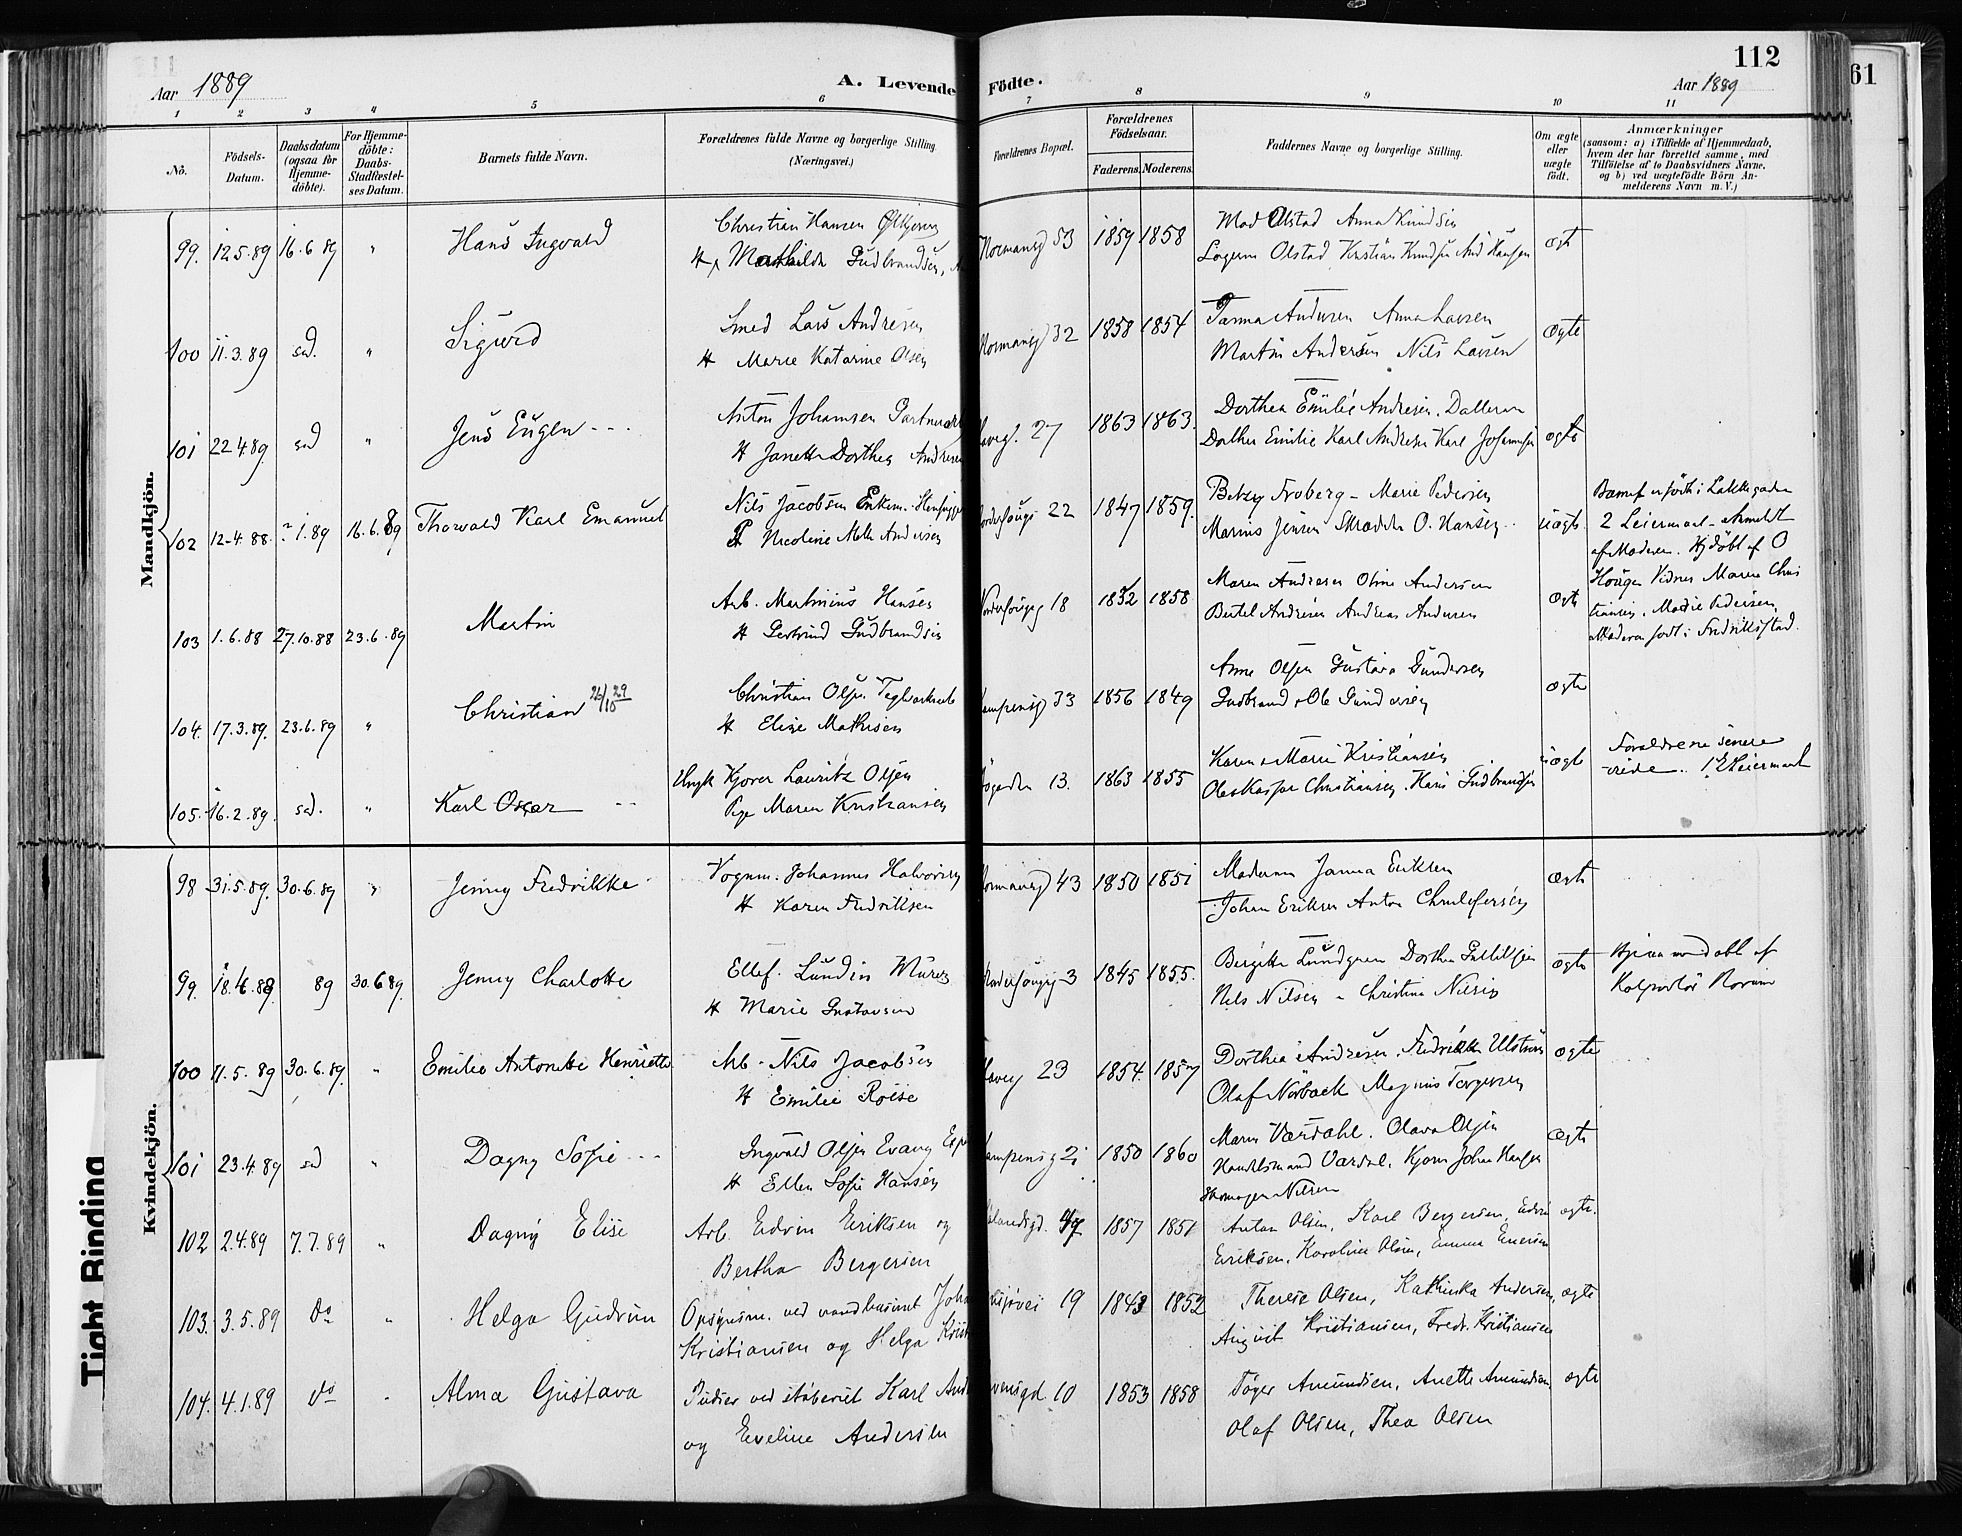 112
61
Aar 1889
A. Levende Födte.
Aar 1889
1 2 3 4 5 6 7 8 9 10 11
No.
Födsels-Datum.
Daabsdatum (ogsaa for Hjemme-döbte).
For Hjemme-döbte: Daabs-Stadfæstel-ses Datum.
Barnets fulde Navn.
Forældrenes fulde Navne og borgerlige Stilling (Næringsvei.)
Forældrenes Bopæl.
Forældrenes Födselsaar.
Faderens. Moderens.
Faddernes Navne og borgerlige Stilling.
Om ægte eller uægte födt.
Anmærkninger
(saasom: a) i Tilfælde af Hjemmedaab,
hvem der har forrettet samme, med
Tilföielse af to Daabsvidners Navne,
og b) ved uægtefödte Börn An-
melderens Navn m. V.)
Mandkjön.
99. 12.5.89 16.6.89 " Hans Ingvald
Christian Hansen
Mathilde Gudbrandsen,
53 1859 1858
Olstad Anna Knudsen
Olstad, Kristian Knudsen
ægt
100 11.3.89 sd. " Sigurd
Smed Lars Andresen
H Marie Katarine Olsen
Normansg 32 1858 1854
Andersen Anna Larsen
Martin Andersen Nils Larsen
ægte
101 22.4.89. sd " Jens Eugen
Anton Johansen Gartner
H Janette Dorthea Andresen
27 1863 1863.
Dorthea Emilie Andresen.
Emilie Karl Andresen Karl Johannsen
ægte
102 12.4.88. ? 1.89 16.6.89 Thorvald Karl Emanuel
Nils Jacobsen Enkem.
P Nicoline Andersen
22 1847 1859.
Betzy Froberg - Marie Pedersen
Marius Jensen Skrædder O. Hansen
uægte
Barnet er födt i Lakkegaden
2 Leiermaal - Anmeldt
af Moderen. Hjdöbt af O
Haugen Vidner Maren Chris
tiansen, Marie Pedersen,
Moderen födt i Fredrikstad.
103 1.6.88 27.10.88 23.6.89 Martin
Arb. Martinius Hansen
H Gertrud Gudbrandsen
18 1852 1858
Maren Andresen Oline Andersen
Bertel Andresen Andreas Andersen
ægte
104. 17.3.89. 23.6.89 " Christian 26/10 29
Christian Olsen Teglverksarb
H Elise Mathisen
Kampensg 33 1856 1849
Anne Olsen Gustava Gundersen
Gudbrand Ole Gundersen
ægte
105. 16.2.89. sd. " Karl Oscar
Ungk Kjører Lauritz Olsen
Pige Maren Kristiansen
13. 1863 1855
Karen Marie Kristiansen
Ole Kaspar Christiansen. Hans Gudbrandsen
uægte
Forældrene senere
viede. 1ste Leiermaal
Kvindekjön.
98 31.5.89. 30.6.89 " Jenny Fredrikke
Vognm. Johannes Halvorsen
H Karen Fredriksen
Normansg 43 1850 1851
Moderen Janna Eriksen
Johan Eriksen Anton Christofersen
ægte
99. 18.6.88 89 30.6.89. Jenny Charlotte
Ellef. Lundin Murer
H Marie Gustavsen
3 1845 1855.
Birgitte Lundgren Dorthea Gullliksen
Nils Nilsen - Christine Nilsen
ægte
Hjemmedöbt af
Kolportör
100 11.5.89 30.6.89. " Emilie Antonette Henriette
Arb. Nils Jacobsen
H Emilie Roise
23 1854. 1857
Dorthea Andresen. Fredrikke
Olaf Norbaek Magnus Torgersen
ægte
101 23.4.89 sd " Dagny Sofie
Ingvald Olsen Evang
H Ellen Sofie Hansen
Kampensg 21 1850 1860
Maren Værdahl. Olava Olsen
Handelsmand Værdal. Kjører Johan Hansen
Skomager Nilsen
ægte
102 2.4.89 7.7.89 " Dagny Elise
Arb. Edvin Eriksen og
Bertha Bergersen
1857 1851
Anton Olsen, Karl Bergersen, Edvin
Eriksen, Karoline Olsen, Emma Enersen
ægte.
103. 3.5.89 Do " Helga Gudrun
Opsynsm. ved vandhuset Joha
Kristiansen og Helga Krist
19 1843 1852
Therese Olsen, Kathinka Andersen,
August Kristiansen, Fredr. Kristiansen
ægte
104. 4.1.89 Do " Alma Gustava
Pudser ved støberiet Karl And
og Eveline Andersen
10 1853 1858
Tøger Amundsen, Anette Amundsen
Olaf Olsen, Thea Olsen
ægte
Tight Binding